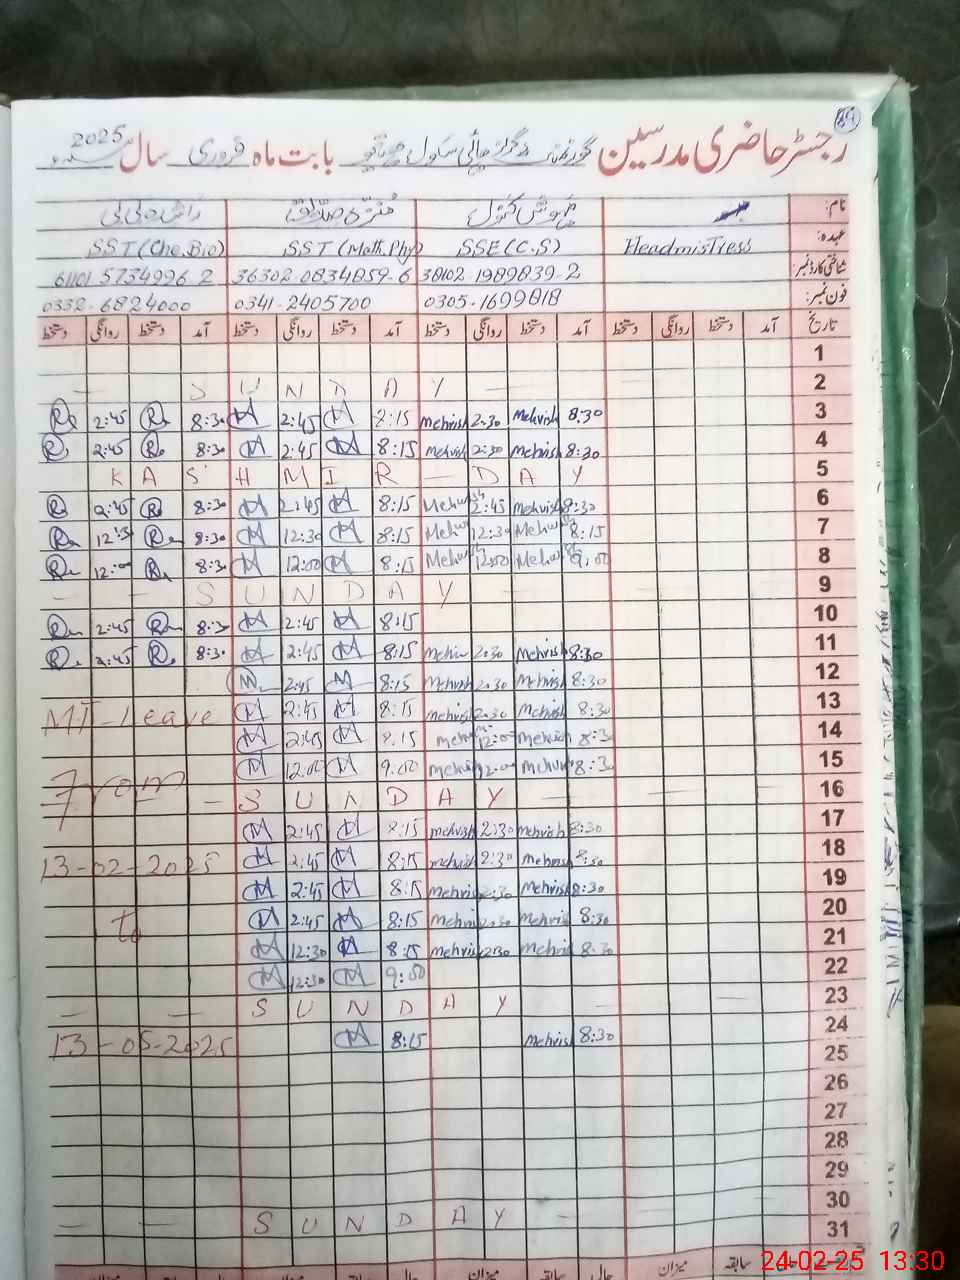 89
رجسٹر حاضری مدرسین گورنمنٹ گرلز ہائی سکول بابت ماہ فروری سال 2025
نام: مہوش کنول
عہدہ: Headmistress SSE (C.S) SST (Math.Phy) SST (Che.Bio)
شناختی کارڈ نمبر: 38102-1989839-2 36302-0834859-6 61101 5734996 2
فون نمبر: 0305-1699818 0341-2405700 0332-6824000
تاریخ آمد دستخط روانگی دستخط آمد دستخط روانگی دستخط آمد دستخط روانگی دستخط آمد دستخط روانگی دستخط
1
SUNDAY 2
2:45 8:30 2:45 8:15 Mehvish 2:30 Mehvish 8:30 3
2:45 8:30 2:45 8:15 Mehvish 2:30 Mehvish 8:30 4
KASHMIR - DAY 5
2:45 8:30 2:45 8:15 Mehvish 2:45 Mehvish 8:30 6
8:30 12:30 8:15 Mehvish 12:30 Mehvish 8:15 7
12:00 8:30 12:00 8:15 Mehvish 12:00 Mehvish 9:00 8
SUNDAY 9
2:45 8:30 2:45 8:15 10
2:45 8:30 2:45 8:15 Mehvish 2:30 Mehvish 8:30 11
2:45 8:15 Mehvish 2:30 Mehvish 8:30 12
MT-Leave 2:45 8:15 Mehvish 2:30 Mehvish 8:30 13
2:45 8:15 12:00 Mehvish 8:30 14
From 12:00 9:00 Mehvish 12:00 Mehvish 8:30 15
SUNDAY 16
2:45 8:15 Mehvish 2:30 Mehvish 8:30 17
13-02-2025 2:45 8:15 Mehvish 2:30 Mehvish 8:30 18
2:45 8:15 Mehvish 2:30 Mehvish 8:30 19
to 2:45 8:15 Mehvish 2:30 Mehvish 8:30 20
12:30 8:15 Mehvish 2:30 Mehvish 8:30 21
12:30 9:00 22
SUNDAY 23
13-05-2025 8:15 Mehvish 8:30 24
25
26
27
28
29
30
SUNDAY 31
میزان سابقہ حالی میزان سابقہ
24-02-25 13:30